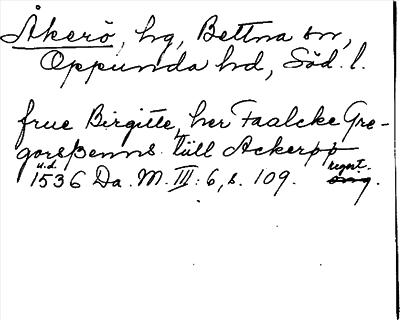 Åkerö, hg, Bettna sn,
Oppunda hd, Söd. l.
frue Birgitte, her Faalcke Gre-
gorsßenns tiill Ackerøø
u.d. regest.
1536 Da. M. III: 6, s. 109. orig.